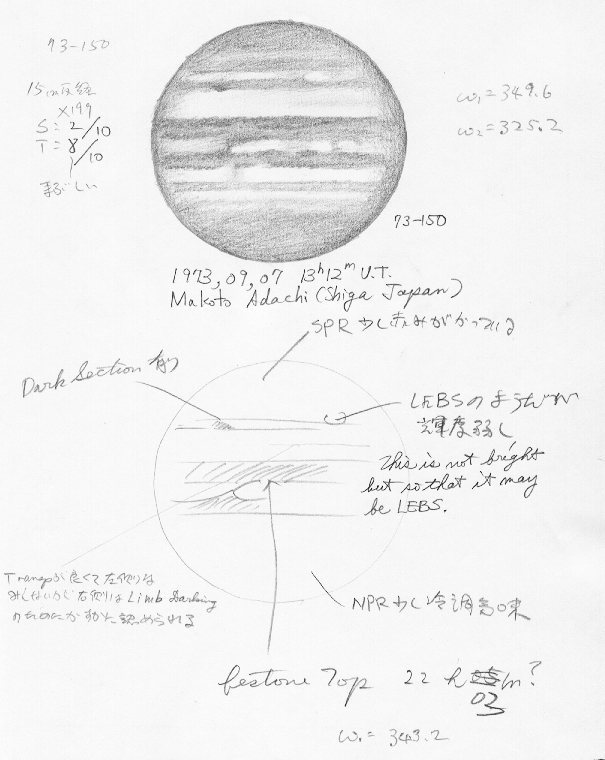 73-150
15cm反経
×199
S: 2/10
T= 8/10
まぶしい
ω₁=349.6
ω₂=325.2
73-150
1973,09,07 13h12m U.T.
Makoto Adachi (Shiga Japan)
SPR 少し赤みがかっている
Dark Section 有り
LEBSのようだが
輝度弱し
This is not bright
but so that it may
be LEBS.
Transpが良くて左側
Limb Darking
認められる
NPR少し冷調気味
festone Top 22h m?
03
ω₁= 343.2